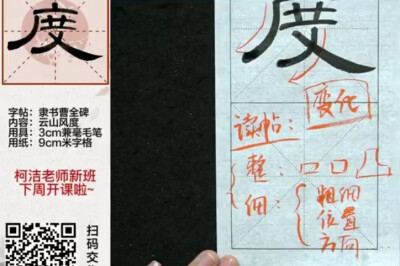 度
字帖：隶书曹全碑
内容：云山风度
用具：3cm兼毫毛笔
用纸：9cm米字格
柯洁老师新班
下周开课啦~
扫码交
度
变化
读帖：
整：
细：
粗细
位置
方向